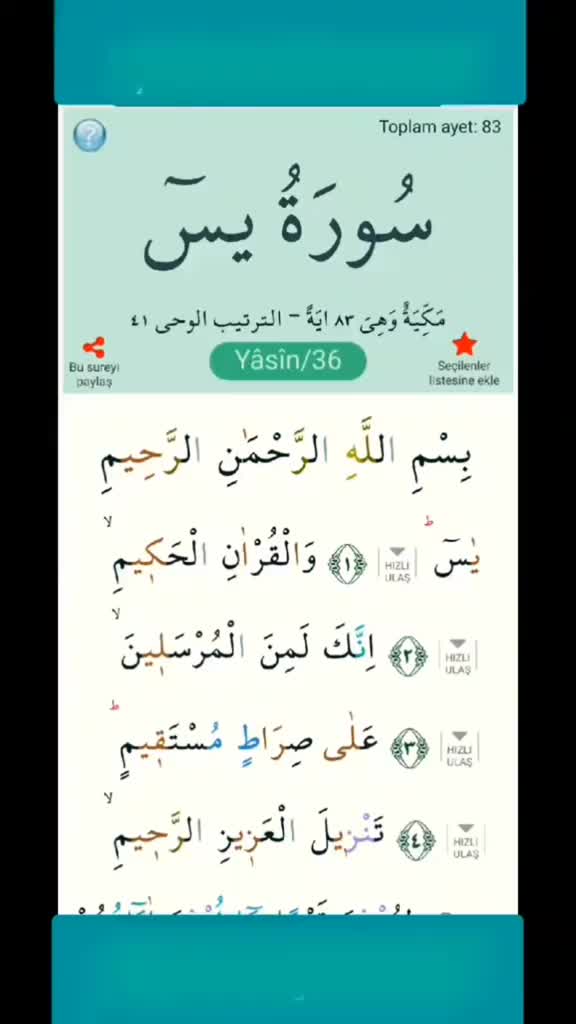 Toplam ayet: 83
سُورَةُ يسٓ
مَكِّيَةٌ وَهِىَ ٨٣ ايَةً – الترتيب الوحى ٤١
Bu sureyi paylaş
Yâsîn/36
Seçilenler listesine ekle
بِسْمِ اللَّهِ الرَّحْمٰنِ الرَّحِيمِ
يٰسٓ ۜ HIZLI ULAŞ ﴿١﴾ وَالْقُرْاٰنِ الْحَكِيمِ ۙ
HIZLI ULAŞ ﴿٢﴾ اِنَّكَ لَمِنَ الْمُرْسَلِينَ ۙ
HIZLI ULAŞ ﴿٣﴾ عَلٰى صِرَاطٍ مُسْتَقِيمٍ ۜ
HIZLI ULAŞ ﴿٤﴾ تَنْزِيلَ الْعَزِيزِ الرَّحِيمِ ۙ